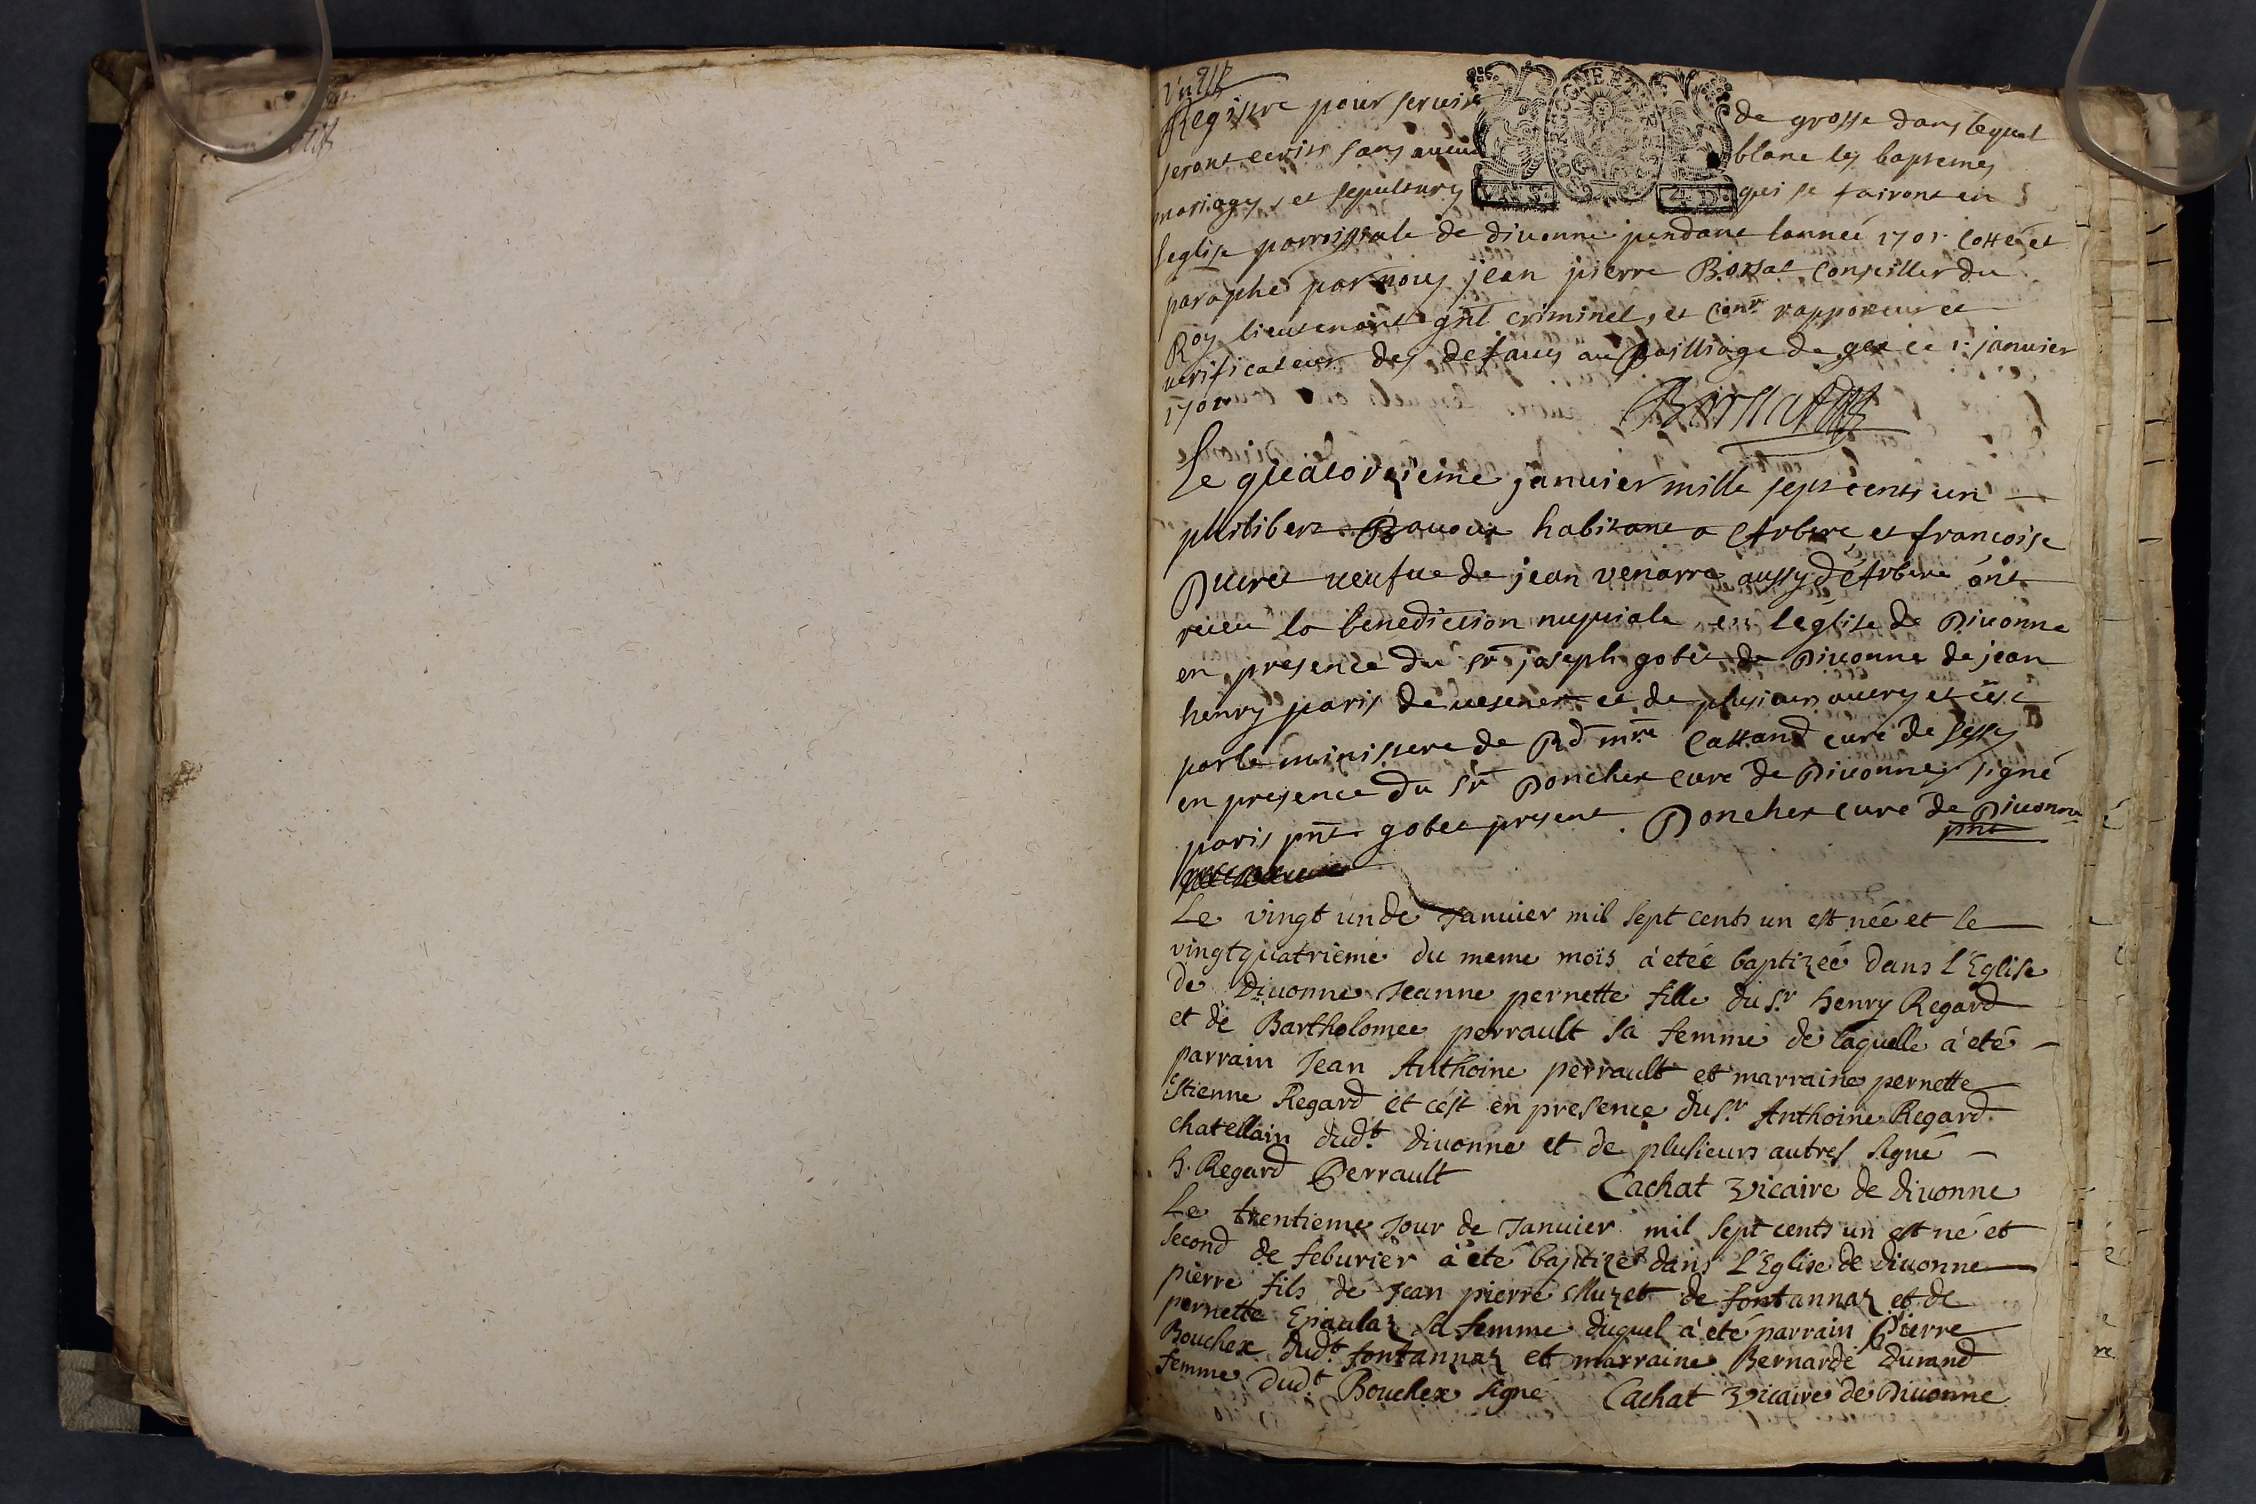 Registre pour servire de grosse dans lequel
seront ecrits sans aucun blanc les baptemes
mariages et sepultures qui se fairont en
leglise parroissiale de divonne pendant lannée 1701 cotté et
paraphé par nous jean pierre Borsat Conseiller du
Roy lieutenant gñl criminel, et rapporteur et
verificateur des defauts au bailliage de gex ce 1. janvier
1701
Borsat
Le quatorzieme janvier mille sept cents un
philibert habitant a Arbere et francoise
Ducret veufve de jean venarre aussy d'Arbere ont
receu la benediction nuptiale en leglise de Divonne
en presence du Sr joseph gobet de Divonne de jean
henry paris de et de plusieurs autres et c'est
par le ministere de Rd mre Cattand curé de
en presence du Sr Poncher curé de Divonne signé
paris pñt gobet present. Poncher curé de Divonne
pñt
Le vingt un de Janvier mil sept cents un est née et le
vingtquatrieme du meme mois à etée baptizée dans l'Eglise
de Divonne Jeanne pernette fille du Sr henry Regard
et de Bartholomee perrault sa femme de laquelle à eté
parrain Jean Anthoine perrault et marraine pernette
Estienne Regard et c'est en presence du Sr Anthoine Regard
chatellain dudt divonne et de plusieurs autres signé
h. Regard Perrault Cachat vicaire de divonne
Le trentieme Jour de Janvier mil sept cents un est né et
second de feburier à eté baptizé dans l'Eglise de divonne
pierre fils de Jean pierre Muzet de fontannaz et de
pernette Epaulaz sa femme duquel à eté parrain Pierre
Bouchex dudt fontannaz et marraine Bernarde Durand
femme dudt Bouchex signé Cachat vicaire de Divonne